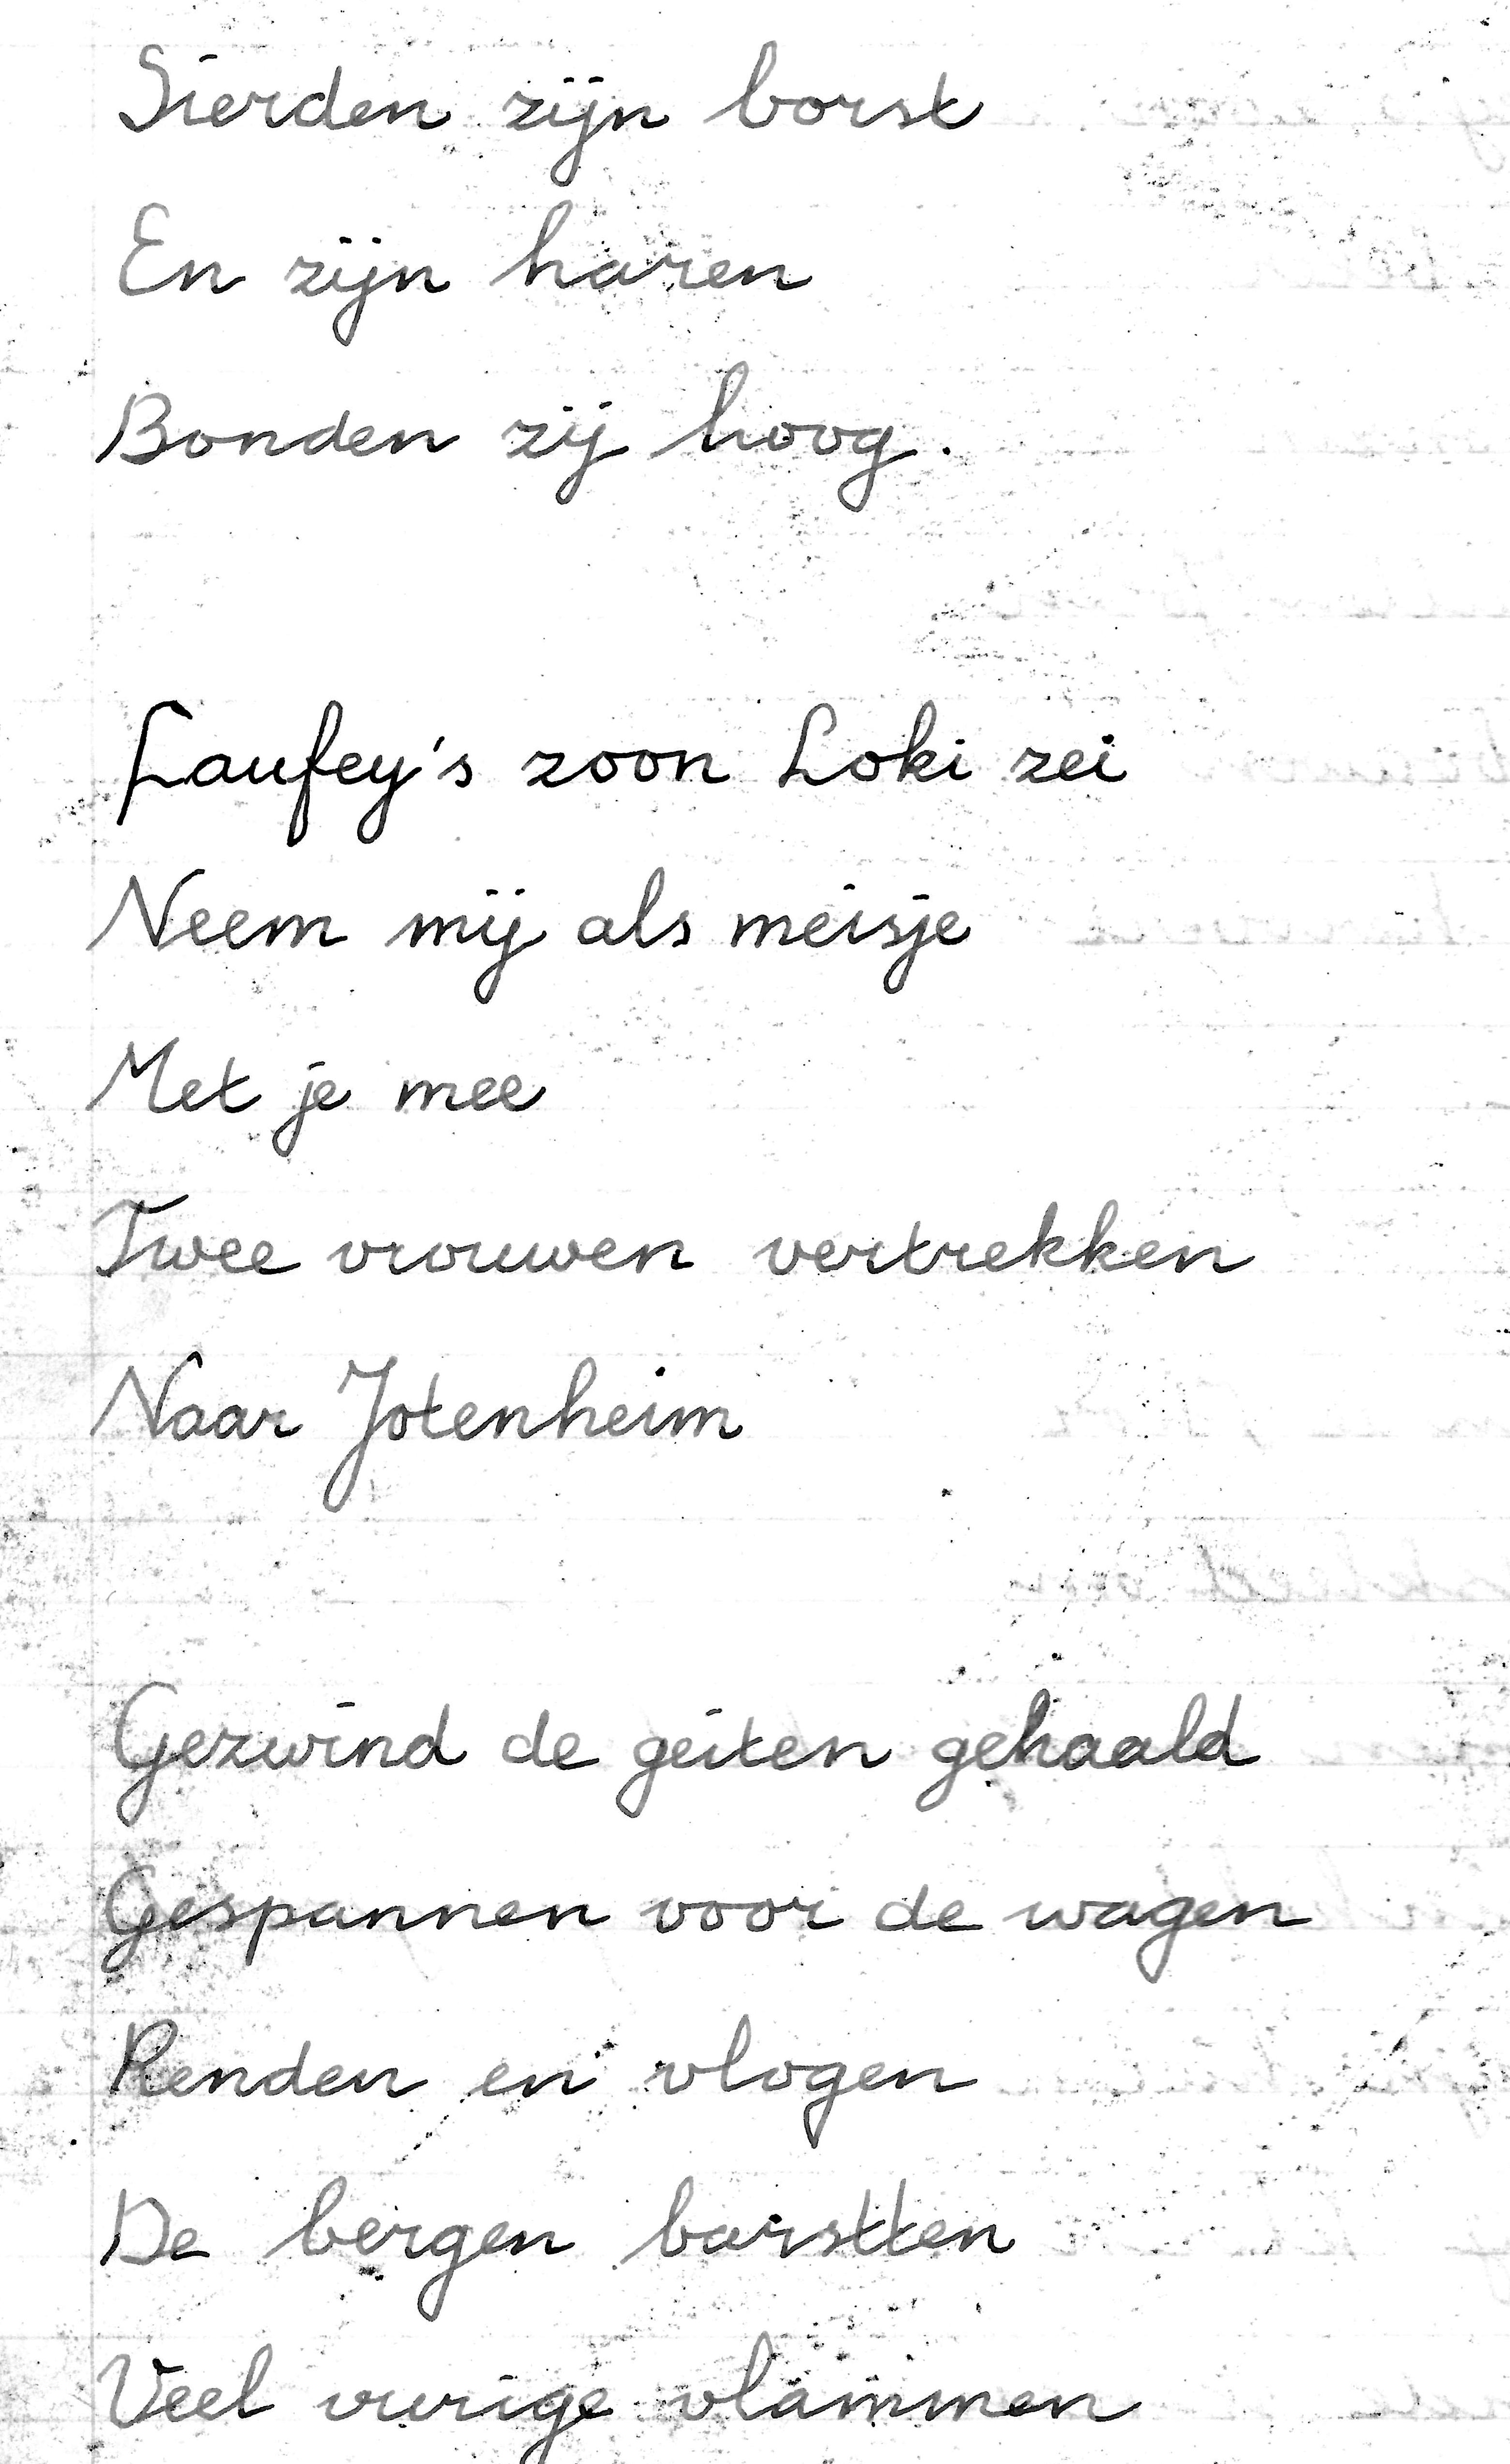 Sierden zijn borst
En zijn haren
Bonden zij hoog.
Laufey's zoon Loki zei
Neem mij als meisje
Met je mee
Twee vrouwen vertrekken
Naar Jotenheim
Gezwind de geiten gehaald
Gespannen voor de wagen
Renden en vlogen
De bergen barstten
Veel vurige vlammen